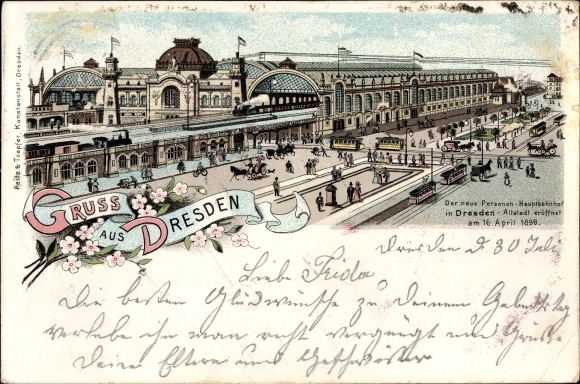 Peitz & Toepfer, Kunstanstalt, Dresden.
GRUSS
AUS DRESDEN
Der neue Personen-Hauptbahnhof
in Dresden-Altstadt eröffnet
am 16 April 1898.
Dresden d 30 Juli
Liebe Frida
Die besten Glückwünsche zu Deinem Geburtstag
verlebe ihn man recht vergnügt und Grüsse
Deine Eltern und Geschwister